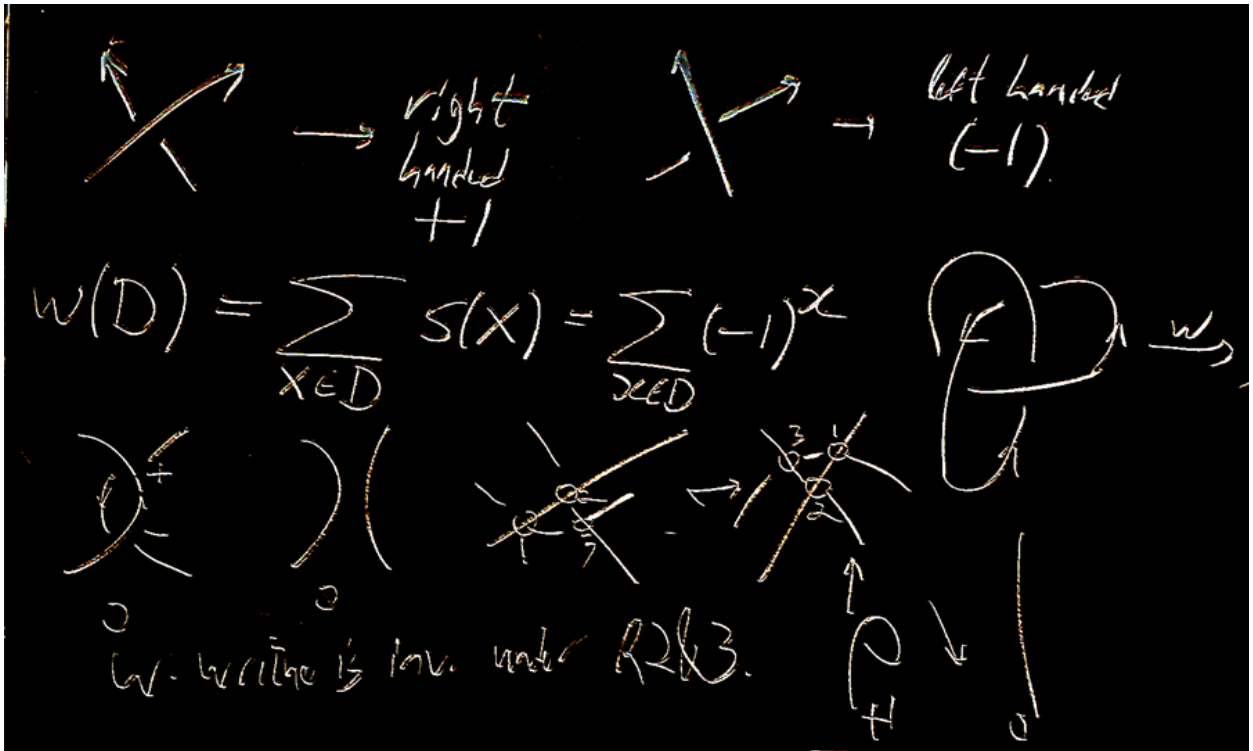 right handed +1
left handed (-1).
w(D) = ∑_{X∈D} s(X) = ∑_{x∈D} (-1)^x
w
+
-
0
0
1 2 3
3 1 2
w. writhe is inv. under R2&3.
+1
0